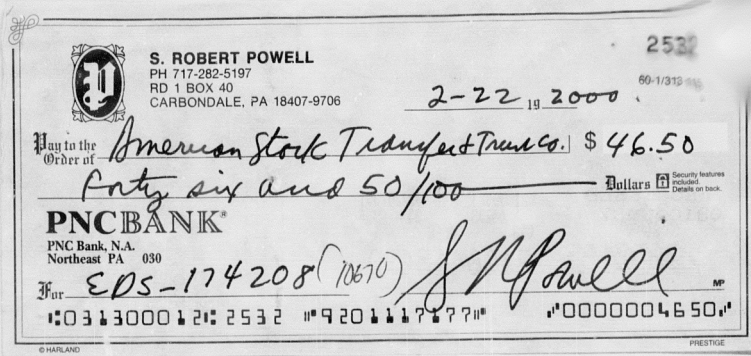 S. ROBERT POWELL
PH 717-282-5197
RD 1 BOX 40
CARBONDALE, PA 18407-9706
2532
60-1/313
2-22 19 2000.
Pay to the Order of American Stock Transfer & Trust Co. $ 46.50
forty six and 50/100 Dollars Security features included. Details on back.
PNCBANK®
PNC Bank, N.A.
Northeast PA 030
For EDS-174208 (10670) S R Powell MP
⑆031300012⑆ 2532 ⑈9201117177⑈ ⑇0000004650⑇
© HARLAND PRESTIGE